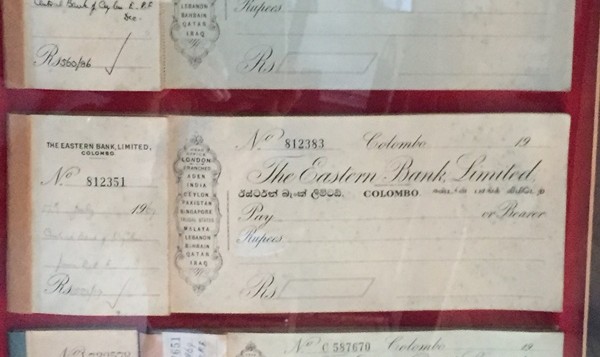 Central Bank of Ceylon
Dec.
Rs 350/86
LEBANON
BAHRAIN
QATAR
IRAQ
Rupees
Rs
THE EASTERN BANK, LIMITED,
COLOMBO.
No 812351
July 19
Central Bank of Ceylon
Rs
HEAD
OFFICE
LONDON
BRANCHES
ADEN
INDIA
CEYLON
PAKISTAN
SINGAPORE
MALAYA
LEBANON
BAHRAIN
QATAR
IRAQ
No 812383 Colombo 19
The Eastern Bank, Limited,
ඊස්ටර්න් බෑංක් ලිමිටඩ්. COLOMBO
Pay or Bearer
Rupees
Rs
No C 587670 Colombo 19